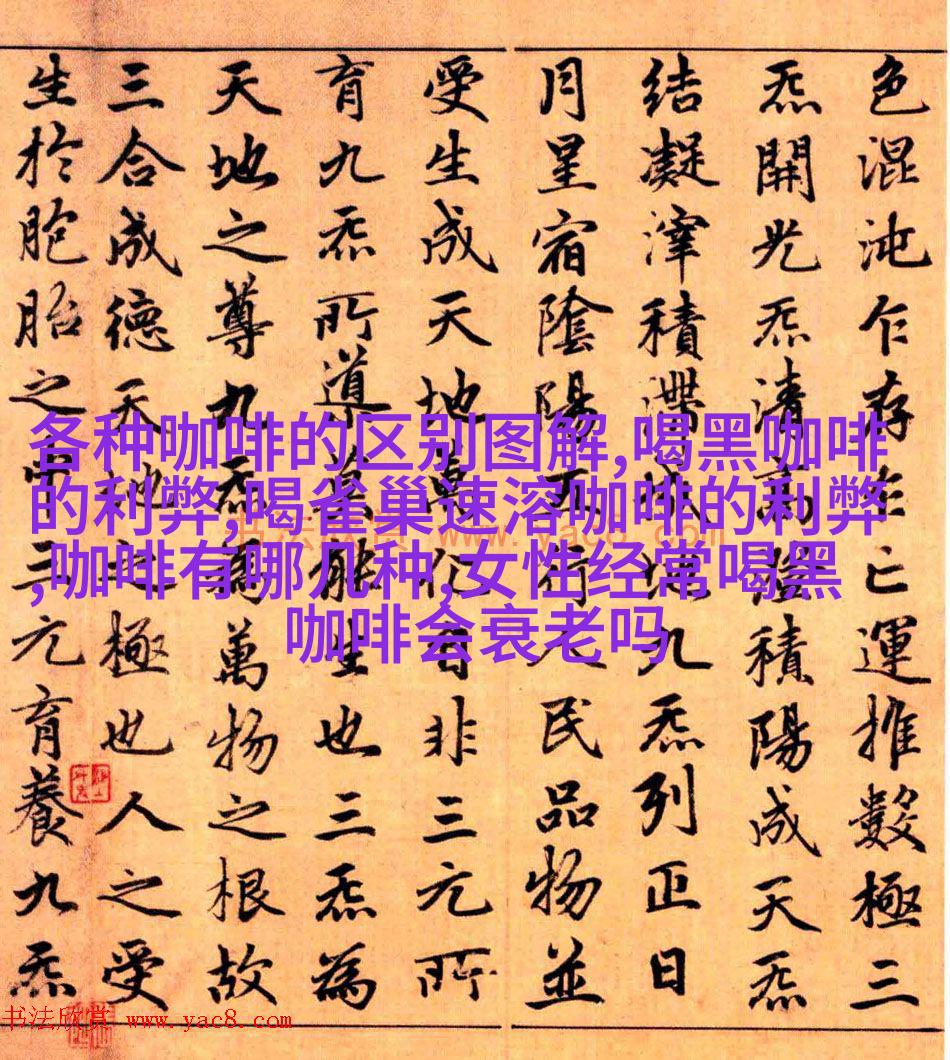 色混沌乍存乍亡運推數極三
炁開光炁清高澄積陽成天炁
結凝滓積滯成地九炁列正日
月星宿陰陽五行人民品物並
受生成天地萬化自非三元所
育九炁所導莫能生也三炁為
天地之尊九炁為萬物之根故
三合成德天地之極也人之受
生於胞胎之中三元育養九炁
各种咖啡的区别图解,喝黑咖啡
的利弊,喝雀巢速溶咖啡的利弊
,咖啡有哪几种,女性经常喝黑
咖啡会衰老吗
书法欣赏 www.yac8.com
书法欣赏 www.yac8.com